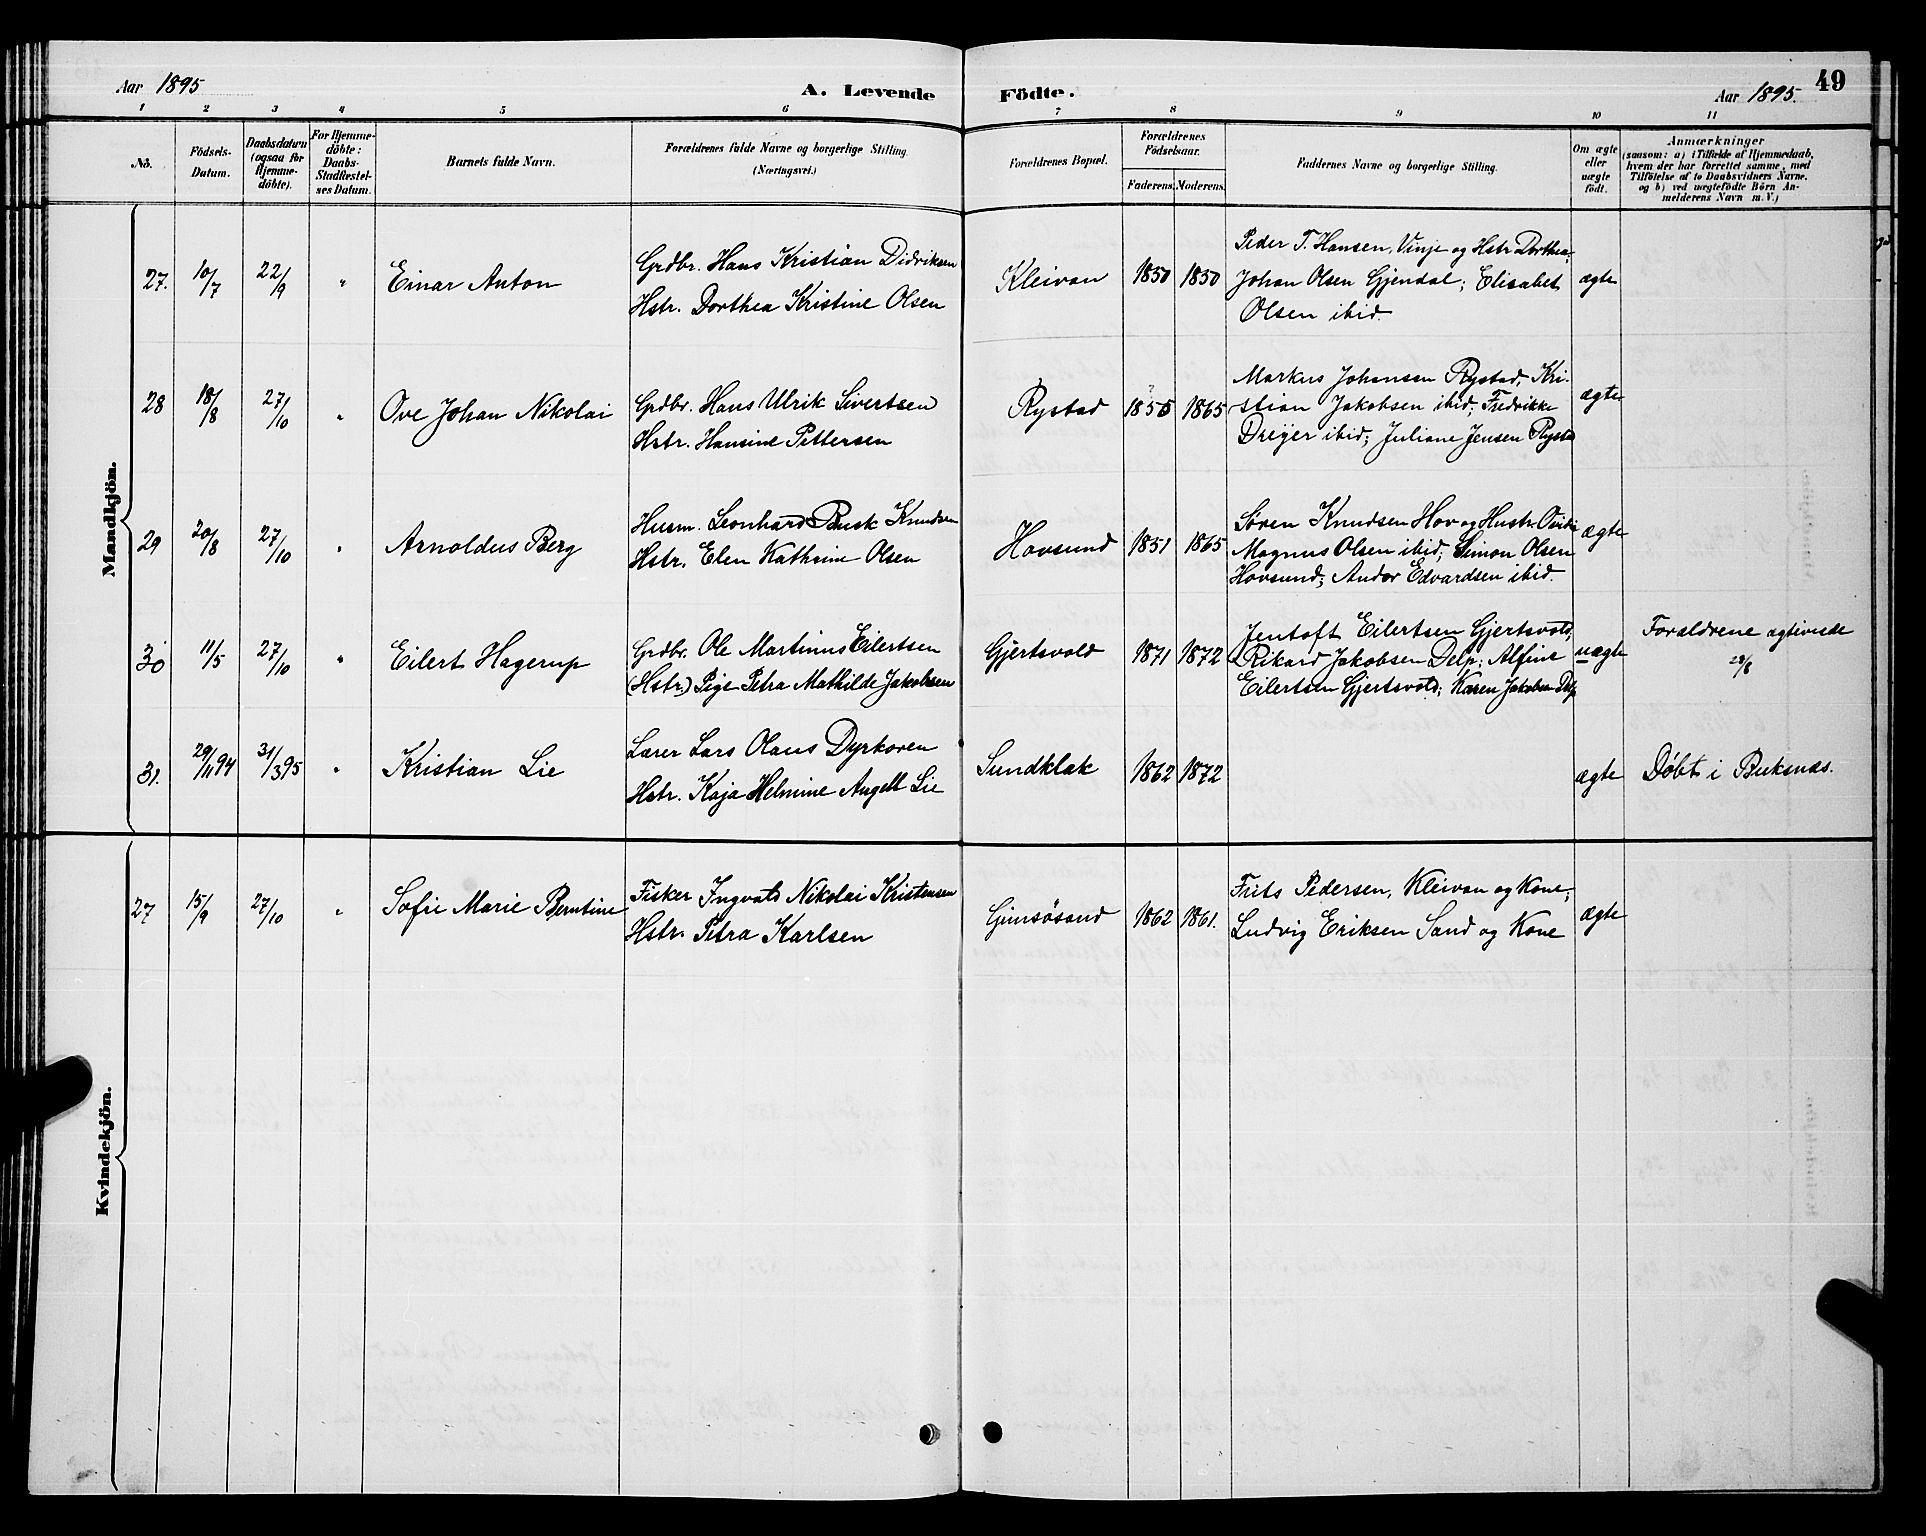 Aar 1895
A. Levende
Födte.
Aar 1895.
49
1 2 3 4 5 6 7 8 9 10 11
No.
Födsels-
Datum.
Daabsdatum
(ogsaa for
Hjemme-
döbte).
For Hjemme-
döbte:
Daabs-
Stadfæstel-
ses Datum.
Barnets fulde Navn.
Forældrenes fulde Navne og borgerlige Stilling.
(Næringsvei.)
Forældrenes Bopæl.
Forældrenes
Födselsaar.
Faderens.
Moderens.
Faddernes Navne og borgerlige Stilling.
Om ægte
eller
uægte
födt.
Anmærkninger
(saasom: a) i Tilfælde af Hjemmedaab,
hvem der har forrettet samme, med
Tilföielse af to Daabsvidners Navne.
og b) ved uægtefödte Börn An-
melderens Navn m. V.)
Mandkjön.
27. 10/7 22/9 " Einar Anton
Grdbr. Hans Kristian Didriksen
Hstr. Dorthea Kristine Olsen
Kleivan 1850 1850
Peder T. Hansen, Vinje og Hstr Dorthea;
Johan Olsen Gjendal; Elisabet
Olsen ibid.
ægte
28 18/8 27/10 " Ove Johan Nikolai
Grdbr. Hans Ulrik Sivertsen
Hstr. Hansine Pettersen
Rystad 1856 1865
Markus Johansen Rystad; Kri-
stian Jakobsen ibid; Fredrikke
Dreÿer ibid; Juliane Jensen Rystad
ægte
29 20/8 27/10 " Arnoldus Berg
Husm. Leonhard Busk Knudsen
Hstr. Elen Kathrine Olsen
Hovsund 1851 1865
Søren Knudsen Hov og Hustr.
Magnus Olsen ibid; Simon Olsen
Hovsund; Andor Edvardsen ibid.
ægte
30 11/5 27/10 " Eilert Hagerup
Grdbr. Ole Martinus Eilertsen
(Hstr.) Pige Petra Mathilde Jakobsen
Gjertsvold 1871 1872
Jentoft Eilertsen Gjertsvold;
Rikard Jakobsen Delp; Alfine
Eilertsen Gjertsvold; Karen Jakobsen Delp
uægte
Forældrene ægtiviede
28/8
31. 29/11 94 31/3 95 " Kristian Lie
Lærer Lars Olaus Dyrkoren
Hstr. Kaja Helmine Angell Lie
Sundklak 1862 1872
ægte
Døbt i Buksnæs.
Kvindekjön.
27 15/9 27/10 " Sofie Marie Berntine
Fisker Ingvald Nikolai Kristensen
Hstr. Petra Karlsen
Gimsøsand 1862 1861.
Frits Pedersen, Kleivan og Kone;
Ludvig Eriksen Sand og Kone
ægte